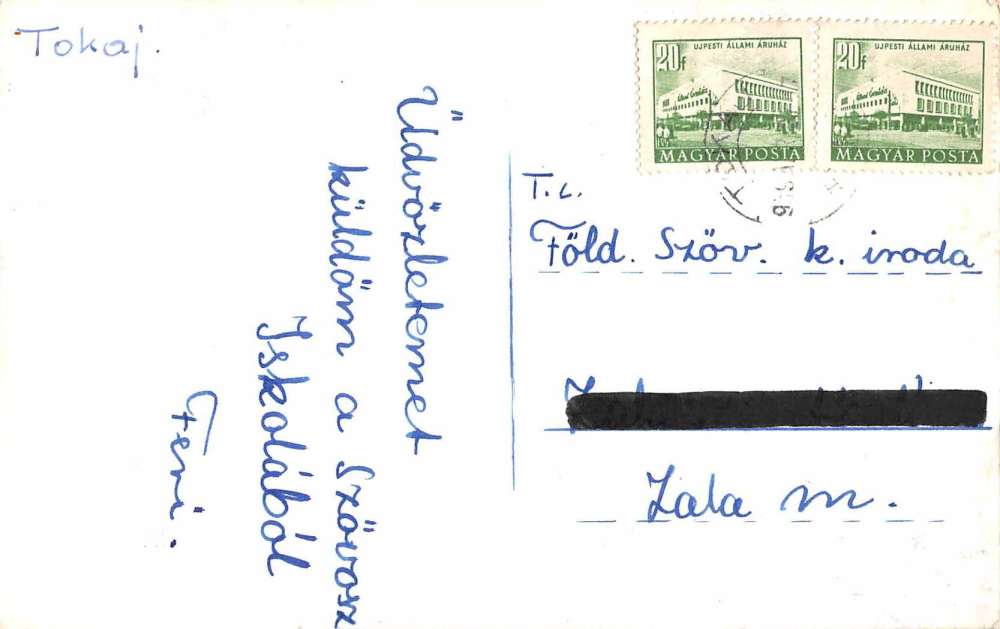 Tokaj.
Üdvözletemet
küldöm a Szövosz
Iskolából
Feri.
20f
UJPESTI ÁLLAMI ÁRUHÁZ
MAGYAR POSTA
20f
UJPESTI ÁLLAMI ÁRUHÁZ
MAGYAR POSTA
T.c.
Föld. Szöv. k. iroda
Zala m.